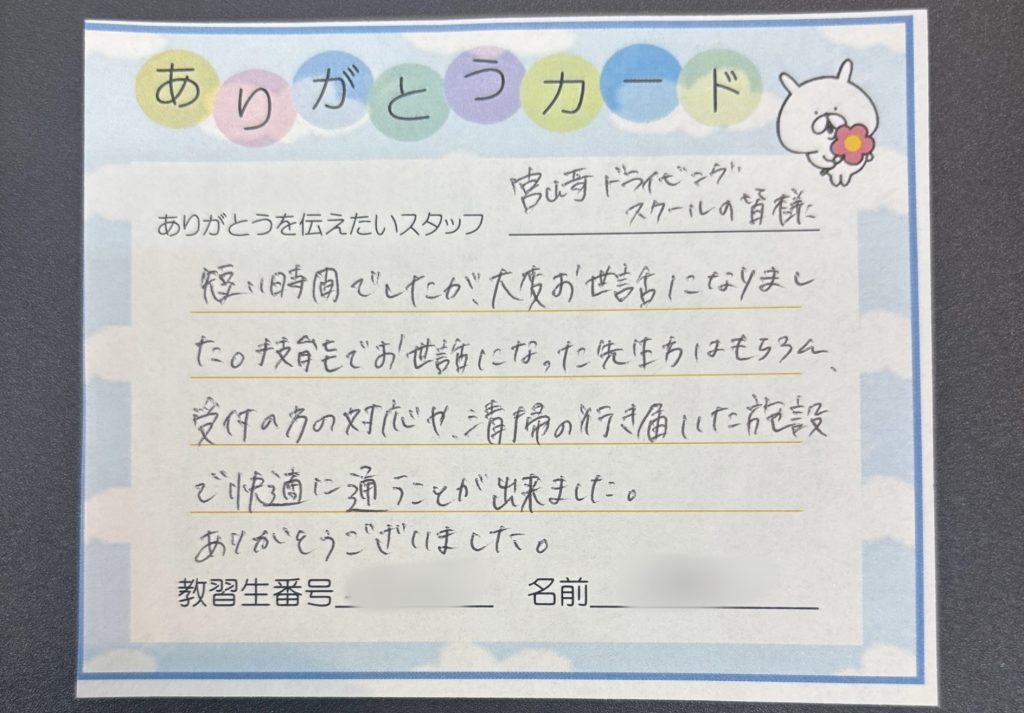 ありがとうカード
宮崎ドライビング
スクールの皆様に
ありがとうを伝えたいスタッフ
短い時間でしたが、大変お世話になりまし
た。技能でお世話になった先生方はもちろん、
受付の方の対応や、清掃の行き届いた施設
で快適に通うことが出来ました。
ありがとうございました。
教習生番号 名前